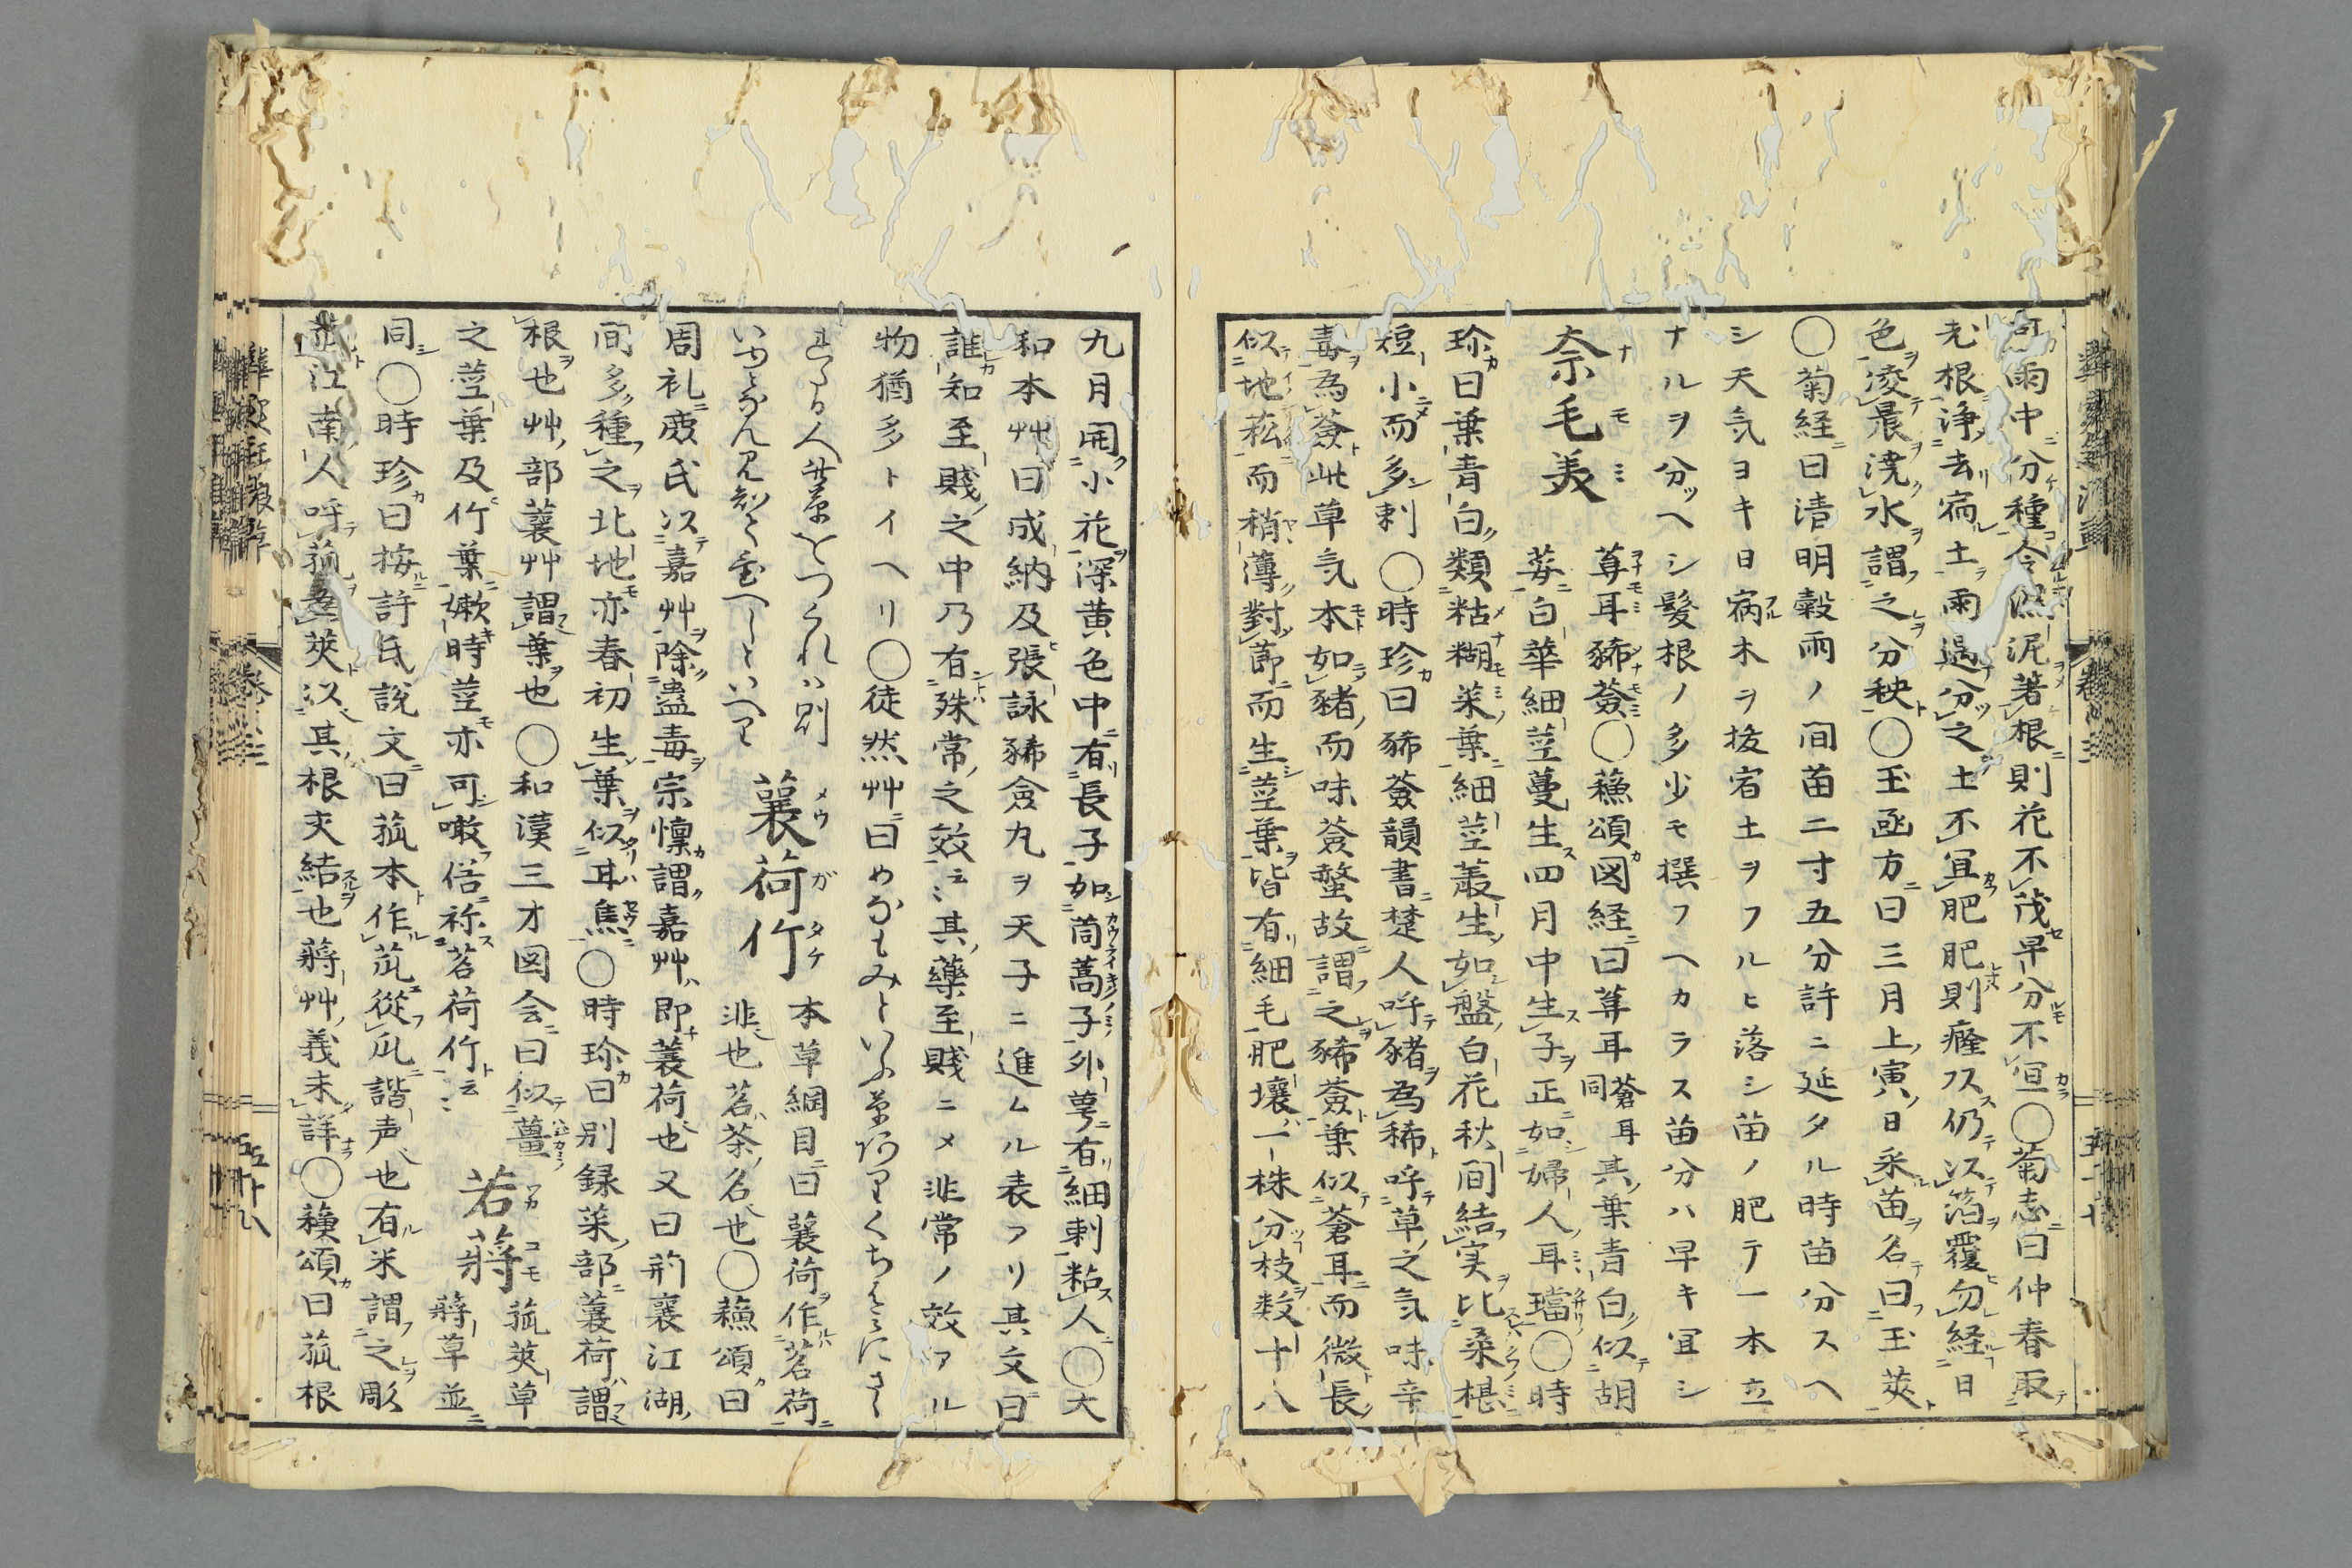 雨中分種令濕泥著根則花不茂早分不宜〇菊志曰仲春取
老根浄去宿土雨過分之土不宜肥肥則癃仍以箔覆勿経日
色凌晨澆水謂之分秧〇玉函方曰三月上寅日采苗名曰玉英
〇菊経曰清明穀雨ノ間苗二寸五分許ニ延タル時苗分スヘ
シ天気ヨキ日病木ヲ抜宿土ヲフルヒ落シ苗ノ肥テ一本立
ナルヲ分ツヘシ髪根ノ多少モ撰フヘカラス苗分ハ早キ冝シ
奈毛美
ナモミ
葈耳豨薟〇蘓頌図経曰葈耳蒼耳同其葉青白似胡
荽白華細茎蔓生四月中生子正如婦人耳璫〇時
珍曰葉青白類粘糊菜葉細茎叢生如盤白花秋間結実比桑椹
短小而多刺〇時珍曰豨薟韻書楚人呼豬為豨呼草之気味辛
毒為薟此草気本如豬而味薟螫故謂之豨薟葉似蒼耳而微長
似地菘而稍薄對節而生茎葉皆有細毛肥壤一株分枝数十八
九月開小花深黄色中有長子如茼蒿子外萼有細刺粘人〇大
和本艸曰成納及張詠豨薟丸ヲ天子ニ進ムル表アリ其文曰
誰知至賤之中乃有殊常之效云〻其藥至賤ニメ非常ノ效アル
物猶多トイヘリ〇徒然艸曰めなもみといふ草ありくちはみにさゝ
れたる人其草をつけれは則
いゆとなん見知て置へしといへり
蘘荷竹
メウガタケ
本草綱目曰蘘荷作茗荷
非也茗茶名也〇蘓頌曰
周礼庶氏以嘉艸除蠱毒宗懍謂嘉艸即蘘荷也又曰荊襄江湖
間多種之北地亦春初生葉似甘蕉〇時珍曰別録菜部蘘荷謂
根也艸部蘘艸謂葉也〇和漢三才図会曰似薑
之茎葉及竹葉嫩時茎亦可噉俗称茗荷竹云〻
若蔣
ワカコモ
菰英草
蔣草並
同〇時珍曰按許氏說文曰菰本作苽從瓜諧声也有米謂之彫
江南人呼菰為茭以其根交結也蔣艸義未詳〇蘓頌曰菰根
五十八